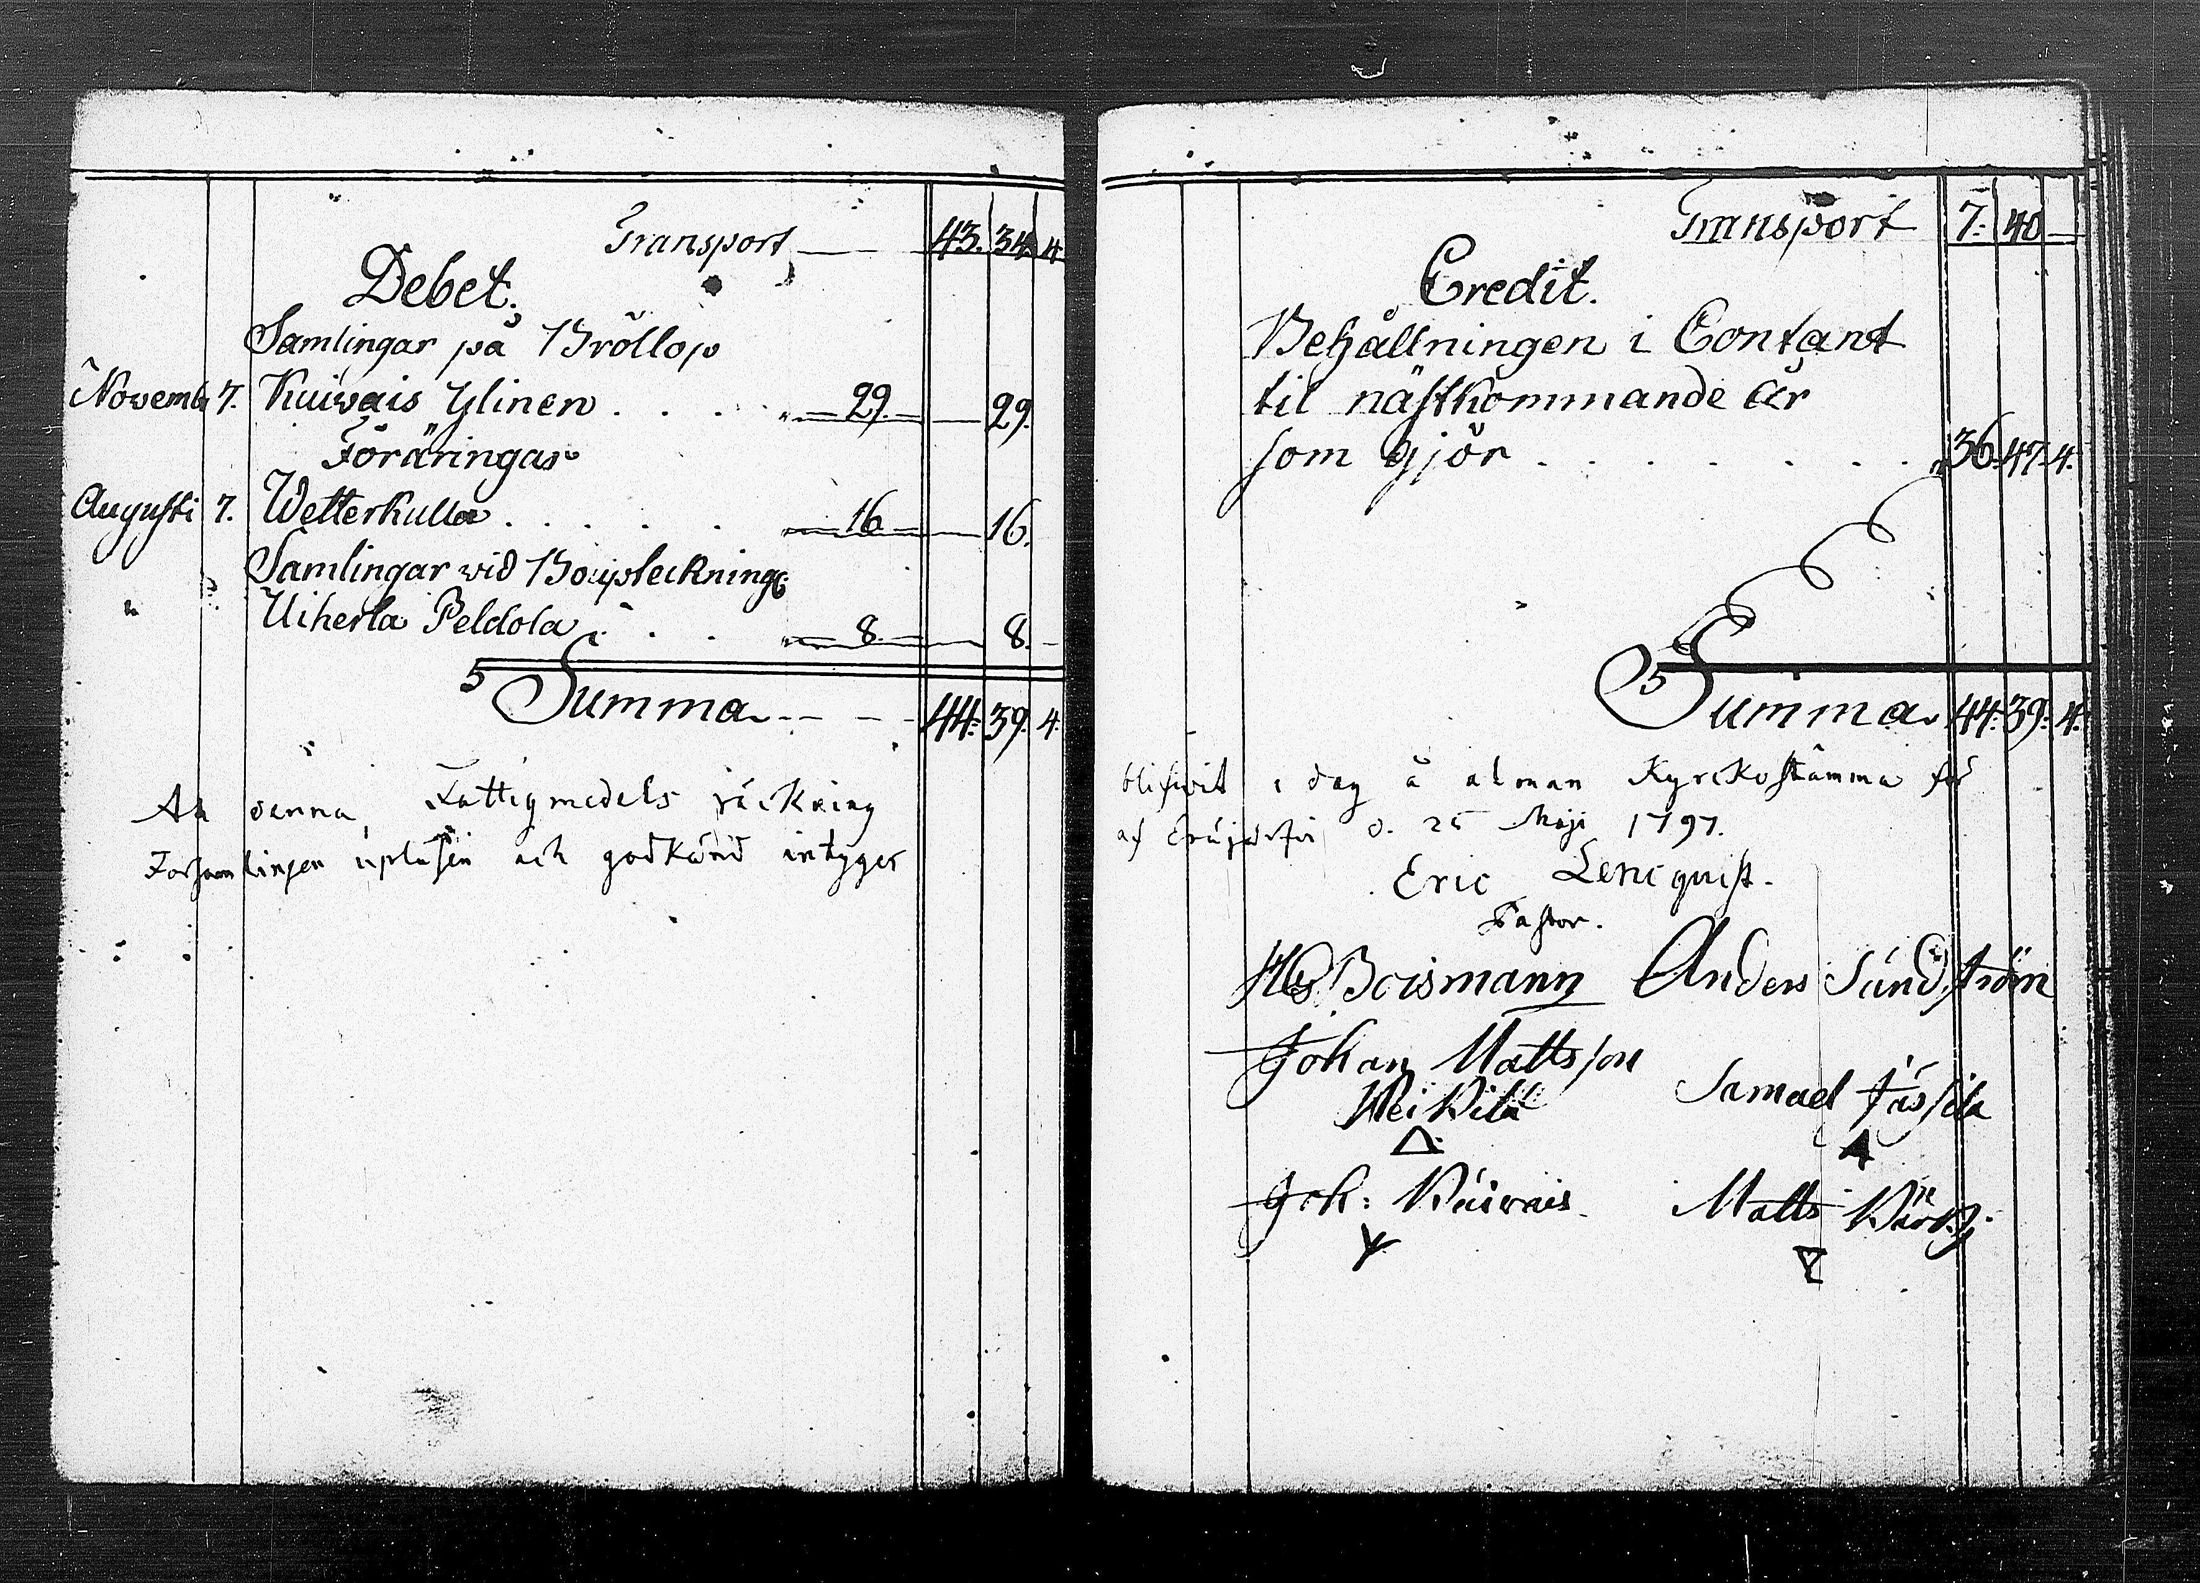 Transport 43. 34. 4.
Debet.
Samlingar på Bröllop
Novemb 7. Kuiwais Ylinen . . . . " 29. 29.
Föräringar
Augusti 7. Wetterkulla . . . . . " 16 16.
Samlingar wid Bouptekning:
" " Uiherla Peldola . . . " 8. 8. -
Summa - - - - 44. 39. 4.
At denna Fattigmedels räckning
Församlingen upläsen och godkänd intygas
Transport 7. 40 -
Credit.
Behållningen i Contant
til nästkommande år
som gjör . . . . . . . " 36. 47. 4.
Summa 44. 39. 4.
blifwit i dag å alman Kyrckostämma för
af d. 25 Maji 1797.
Eric Lencquist.
Pastor.
Boismann Anders Sundström
Johan Mattsson
Samuel
Heikilä
Joh: Kuiwais Matts